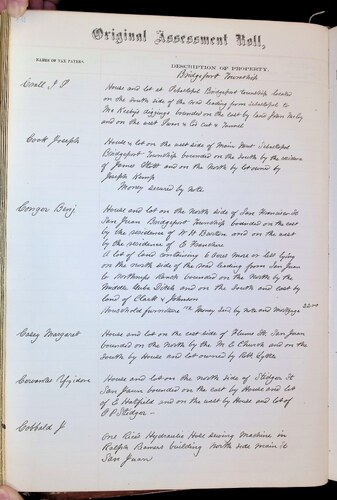 Original Assessment Roll,
NAMES OF TAX PAYERS.
DESCRIPTION OF PROPERTY.
Bridgeport Township
Crall J P
House and lot at Sebastopol Bridgeport Township located
on the South side of the road leading from Sebastopol to
McKeebys diggings bounded on the East by land John
and on the west Farr & Co Cut & Tunnel
Cook Joseph
House & lot on the west side of Main Street Sebastopol
Bridgeport Township bounded on the South by the residence
of James Stott and on the North by lot owned by
Joseph Kemp
Money secured by note
Conger Benj
House and lot on the North side of San Francisco St
San Juan Bridgeport Township bounded on the east
by the residence of W H Barton and on the west
by the residence of E Franchere
A lot of land containing 6 acres more or less lying
on the north side of the road leading from San Juan
to Northrups Ranch bounded on the North by the
Middle Yuba Ditch and on the South and East by
land of Clark & Johnson
Household furniture Money Secd by note and mortgage 2200
Casey Margaret
House and lot on the east side of Flume St San Juan
bounded on the North by the M E Church and on the
South by House and lot owned by Robt
Cervantes Ygidora
House and lot on the north side of Sledger St
San Juan bounded on the East by House and lot
of E Hatfield and on the west by House and lot of
P P Sledger
Cobbald J
One Hydraulic Hose sewing Machine in
Ralph building North side main St
San Juan